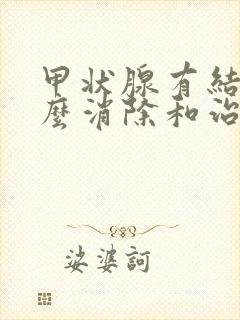 甲状腺有結
麼消除和治
娑婆訶